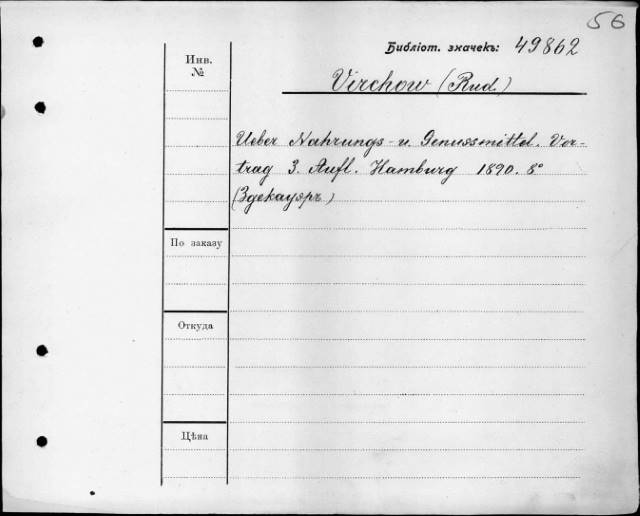 56
Библіот. значекъ: 49862
Инв.
№
Virchow (Rud)
Ueber Nahrungs- u. Genussmittel. Vor-
trag 3. Aufl. Hamburg 1890. 8°
(Здекауэръ)
По заказу
Откуда
Цѣна